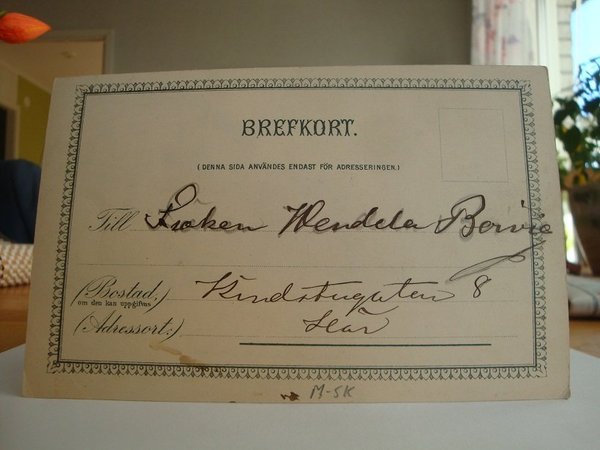 BREFKORT.
(DENNA SIDA ANVÄNDES ENDAST FÖR ADRESSERINGEN.)
Till Fröken Wendela Borvie
(Bostad,) Kindstugatan 8
om den kan uppgifvas
(Adressort:) Här
M-SK